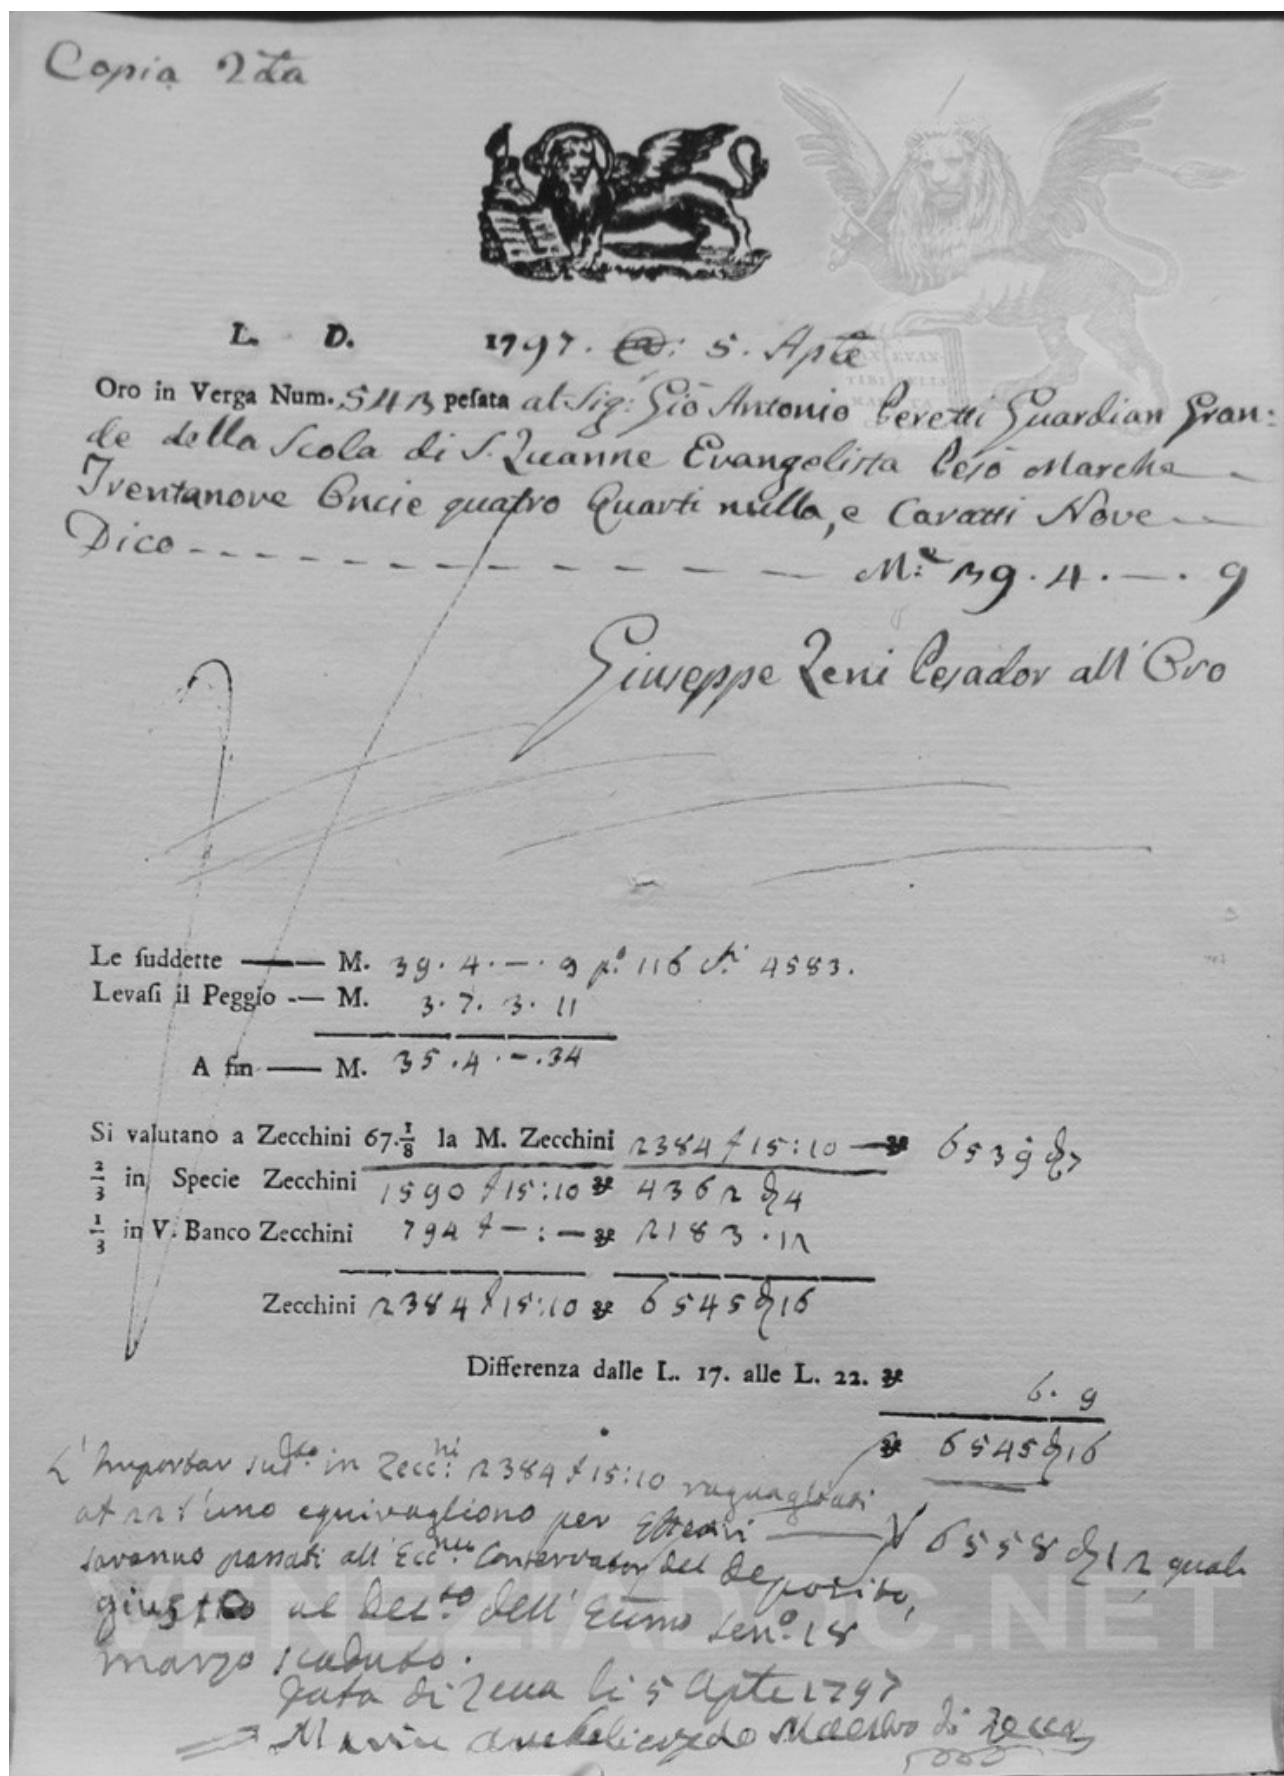 Copia 2da
L. D. 1797. 5. Aple
Oro in Verga Num. 543 peſata al Sig: Giò Antonio Peretti Guardian Gran:
de della Scola di S. Zuanne Evangelista Pesò Marche
Trentanove Oncie quatro Quarti nulla, e Caratti Nove
Dico M: 39. 4. —. 9
Giuseppe Zeni Pesador all' Oro
Le ſuddette —— M. 39. 4. —. 9 p.o 116 4583.
Levaſi il Peggio -— M. 3. 7. 3. 11
A fin —— M. 35. 4. —. 34
Si valutano a Zecchini 67. 1/8 la M. Zecchini 2384 15:10 6539 7
2/3 in Specie Zecchini 1590 15:10 4362 4
1/3 in V. Banco Zecchini 794 — : — 2183. 12
Zecchini 2384 15:10 6545 16
Differenza dalle L. 17. alle L. 22. 6. 9
6545 16
L'Importar sud.to in Zecc:ni 2384 15:10 raguagliati
at 22 l'uno equivagliono per Effettivi 6558 12 quali
saranno passati all' Ecc.mo Conservator del Deposito,
giusto al Dec.to dell' Ecc.mo Sen.o 18
marzo scaduto.
Data di Zecca li 5 Aple 1797
Maestro di Zecca
VENEZIADOC.NET